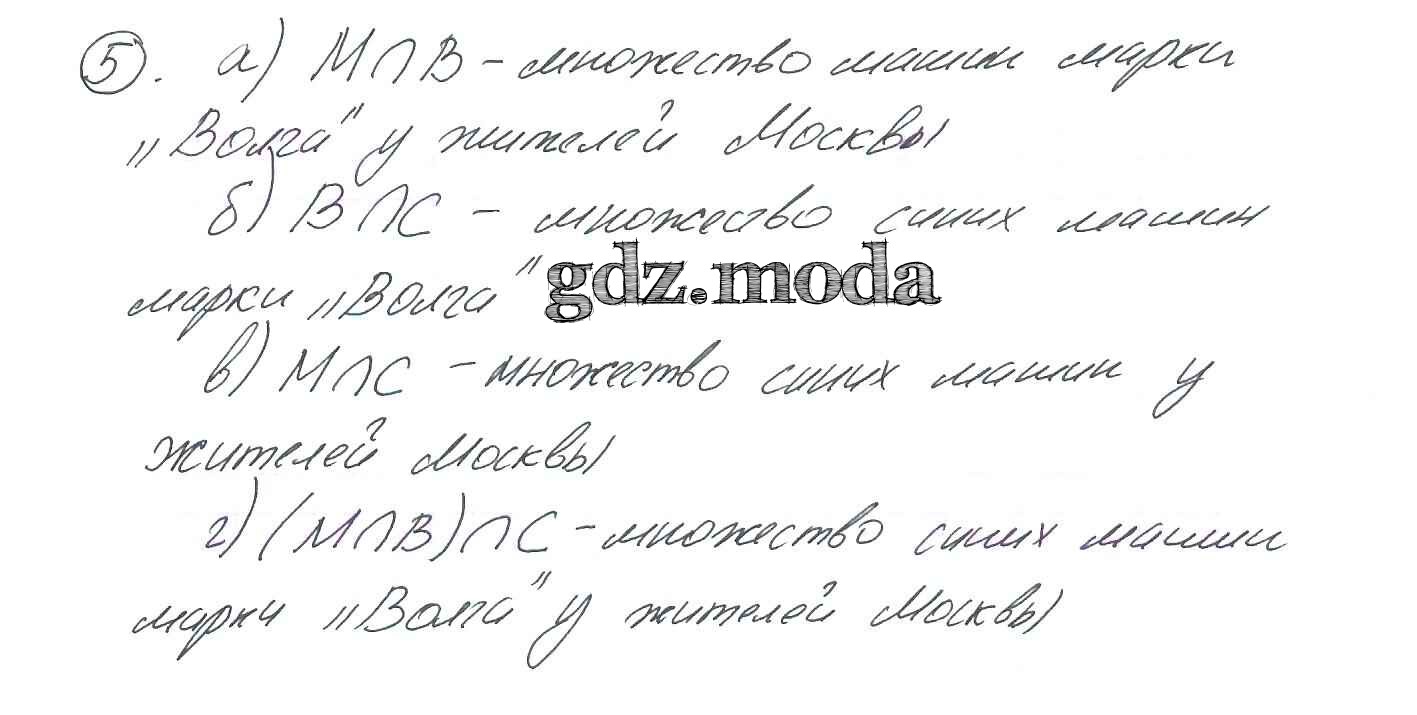 5. а) М∩В – множество машин марки
„Волга" у жителей Москвы
б) В∩С – множество синих машин
марки „Волга" gdz.moda
в) М∩С – множество синих машин у
жителей Москвы
г) (М∩В)∩С – множество синих машин
марки „Волга" у жителей Москвы